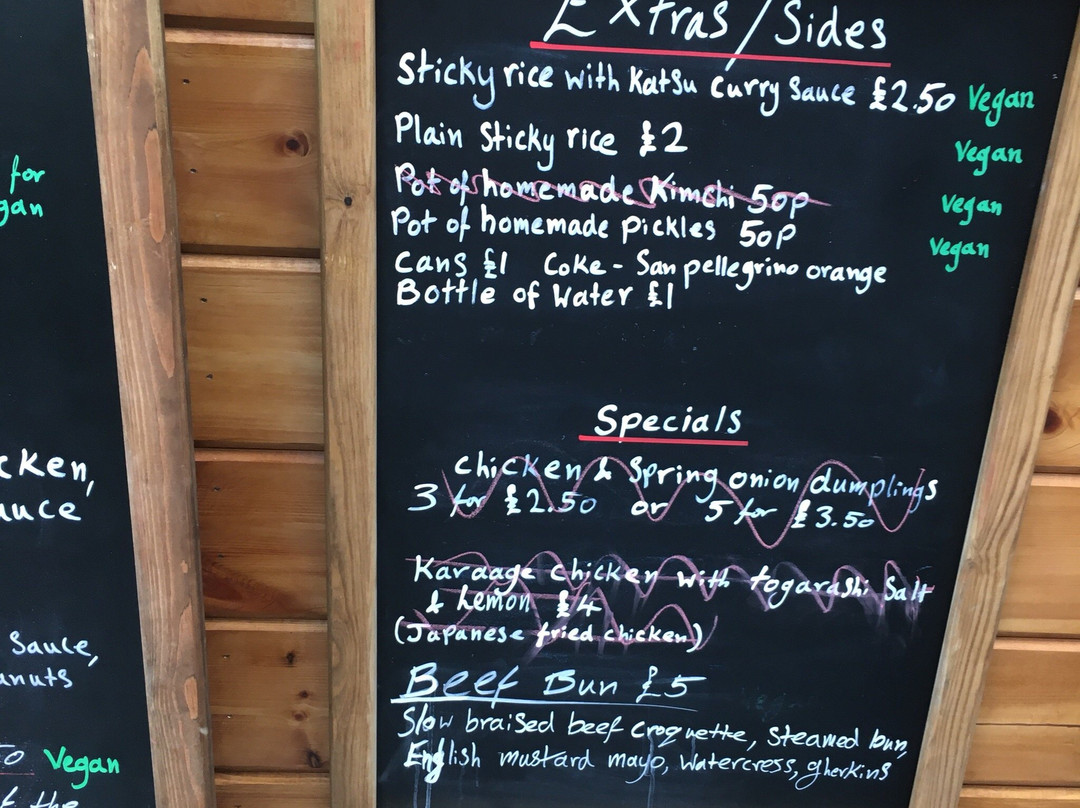 for
gan
cken,
auce
Sauce,
anuts
Vegan
f the
Extras/Sides
Sticky rice with Katsu Curry Sauce £2.50 Vegan
Plain Sticky rice £2 Vegan
Pot of homemade Kimchi 50p Vegan
Pot of homemade Pickles 50p Vegan
Cans £1 Coke - San pellegrino orange
Bottle of Water £1
Specials
Chicken & Spring onion dumplings
3 for £2.50 or 5 for £3.50
Karaage chicken with togarashi Salt
& Lemon £4
(Japanese fried chicken)
Beef Bun £5
Slow braised beef croquette, steamed bun,
English mustard mayo, watercress, gherkins